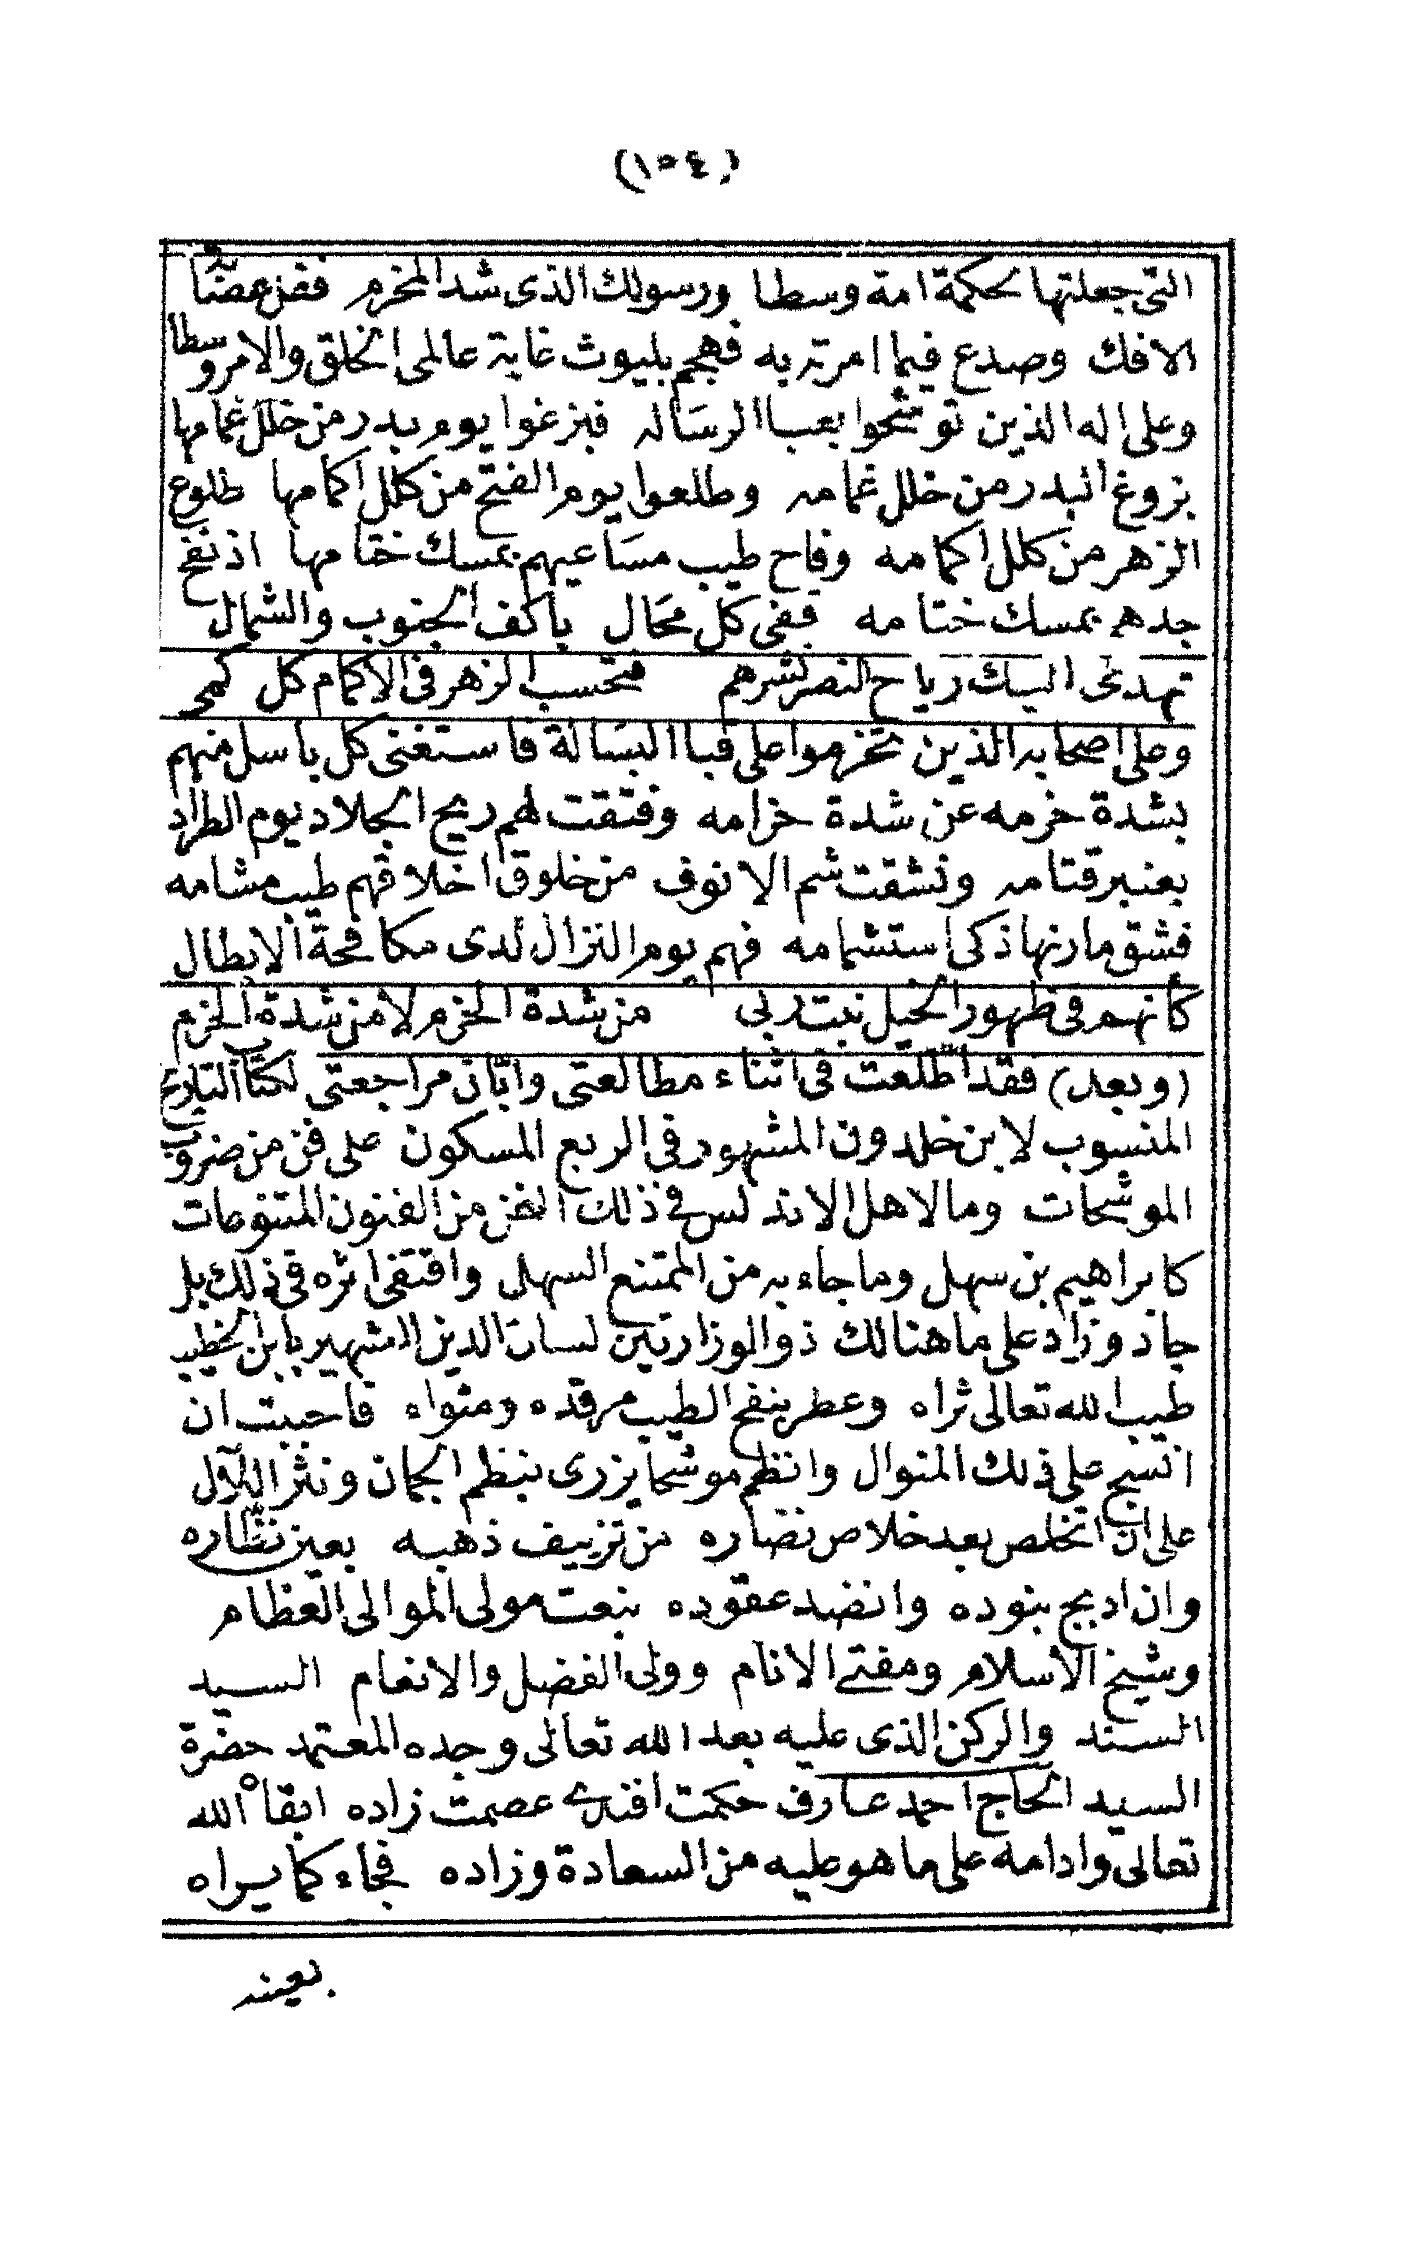 (١٥٤)
التى جعلتها لحكمة امة وسطا ورسولك الذى شد المخرم ففز عصبًا
الافك وصدع فيما امرته به فهجم بليوث غاية عالمى الخلق والامر وسطا
وعلى اله الذين توشحوا بعبا الرسَاله فبزغوا يوم بدر من خلل غمامها
بزوغ البدر من خلل غمامه وطلعوا يوم الفتح من كلل اكمامها طلوع
الزهر من كلل اكمامه وفاح طيب مسَاعيهم بمسك ختامها اذ نفح
جدهم بمسك ختامه ففى كل محَال باكف الجنوب والشمائل
تهدى اليك رياح النصر نشرهم فتحسب الزهر فى الاكمام كل كمى
وعلى اصحابه الذين تحزموا على قبا البسَالة فاستغنى كل باسل منهم
بشدة حزمه عن شدة حزامه وفتقت لهم ريح الجلاد يوم الطراد
بعنبر قتامه ونشقت شم الانوف من خلوق اخلاقهم طيب مشامه
فشق مارنها ذكى استشمامه فهم يوم النزال لدى مكافحة الابطال
كأنهم فى ظهور الخيل نبت ربى من شدة الحزم لا من شدة الحزم
(وبعد) فقد اطّلعت فى اثناء مطالعتى وابّان مراجعتى لكتاب التاريخ
المنسوب لابن خلدون المشهور فى الربع المسكون على فن من ضروب
الموشحات وما لاهل الاندلس فى ذلك الفن من الفنون المتنوعات
كابراهيم بن سهل وما جاء به من الممتنع السهل واقتفى اثره فى ذلك بل
جاد وزاد على ما هنالك ذو الوزارتين لسان الدين الشهير بابن الخطيب
طيب الله تعالى ثراه وعطر بنفح الطيب مرقده ومثواه فاحببت ان
انسج على ذلك المنوال وانظم موشحا يزرى بنظم الجمان ونثر اللآل
على ان اتخلص بعد خلاص نضاره من تزييف ذهبه بعين نظّاره
وان ادبج بنوده وانضد عقوده بنعت مولى الموالى العظام
وشيخ الاسلام ومفتى الانام وولى الفضل والانعام السيد
السند والركن الذى عليه بعد الله تعالى وجده المعتمد حضرة
السيد الحاج احمد عارف حكمت افندى عصمت زاده ابقاه الله
تعالى وادامه على ما هو عليه من السعادة وزاده فجاء كما يراه
بعينه